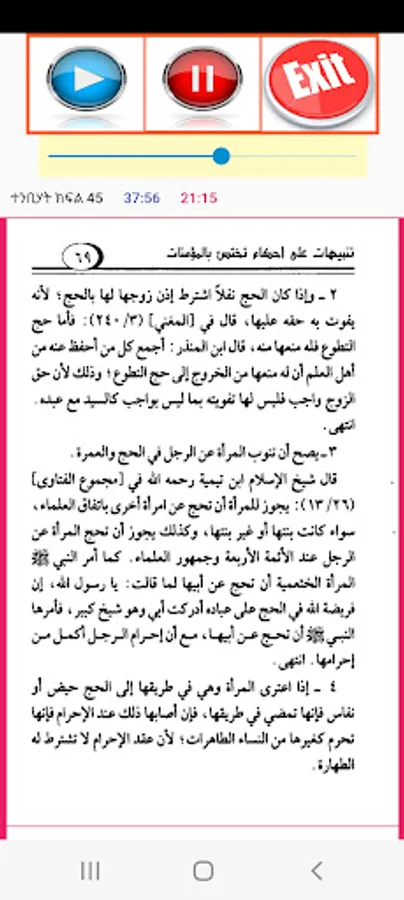 Exit
ተንቢሃት ክፍል 45 37:56 21:15
تنبيهات على أحكام تختص بالمؤمنات
٦٩
٢ ـ وإذا كان الحج نفلاً اشترط إذن زوجها لها بالحج؛ لأنه
يفوت به حقه عليها، قال في [المغني] (٣/ ٢٤٠): فأما حج
التطوع فله منعها منه، قال ابن المنذر: أجمع كل من أحفظ عنه من
أهل العلم أن له منعها من الخروج إلى حج التطوع؛ وذلك لأن حق
الزوج واجب فليس لها تفويته بما ليس بواجب كالسيد مع عبده.
انتهى.
٣ ـ يصح أن تنوب المرأة عن الرجل في الحج والعمرة.
قال شيخ الإسلام ابن تيمية رحمه الله في [مجموع الفتاوى]
(٢٦/ ١٣): يجوز للمرأة أن تحج عن امرأة أخرى باتفاق العلماء،
سواء كانت بنتها أو غير بنتها، وكذلك يجوز أن تحج المرأة عن
الرجل عند الأئمة الأربعة وجمهور العلماء. كما أمر النبي ﷺ
المرأة الخثعمية أن تحج عن أبيها لما قالت: يا رسول الله، إن
فريضة الله في الحج على عباده أدركت أبي وهو شيخ كبير، فأمرها
النبي ﷺ أن تحج عن أبيها، مع أن إحرام الرجل أكمل من
إحرامها. انتهى.
٤ ـ إذا اعترى المرأة وهي في طريقها إلى الحج حيض أو
نفاس فإنها تمضي في طريقها، فإن أصابها ذلك عند الإحرام فإنها
تحرم كغيرها من النساء الطاهرات؛ لأن عقد الإحرام لا تشترط له
الطهارة.